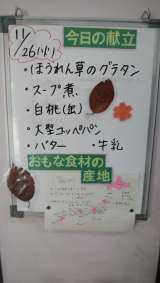 今日の献立
11/26(火)
・ほうれん草のグラタン
・スープ煮
・白桃(缶)
・大型コッペパン
・バター ・牛乳
おもな食材の
産地